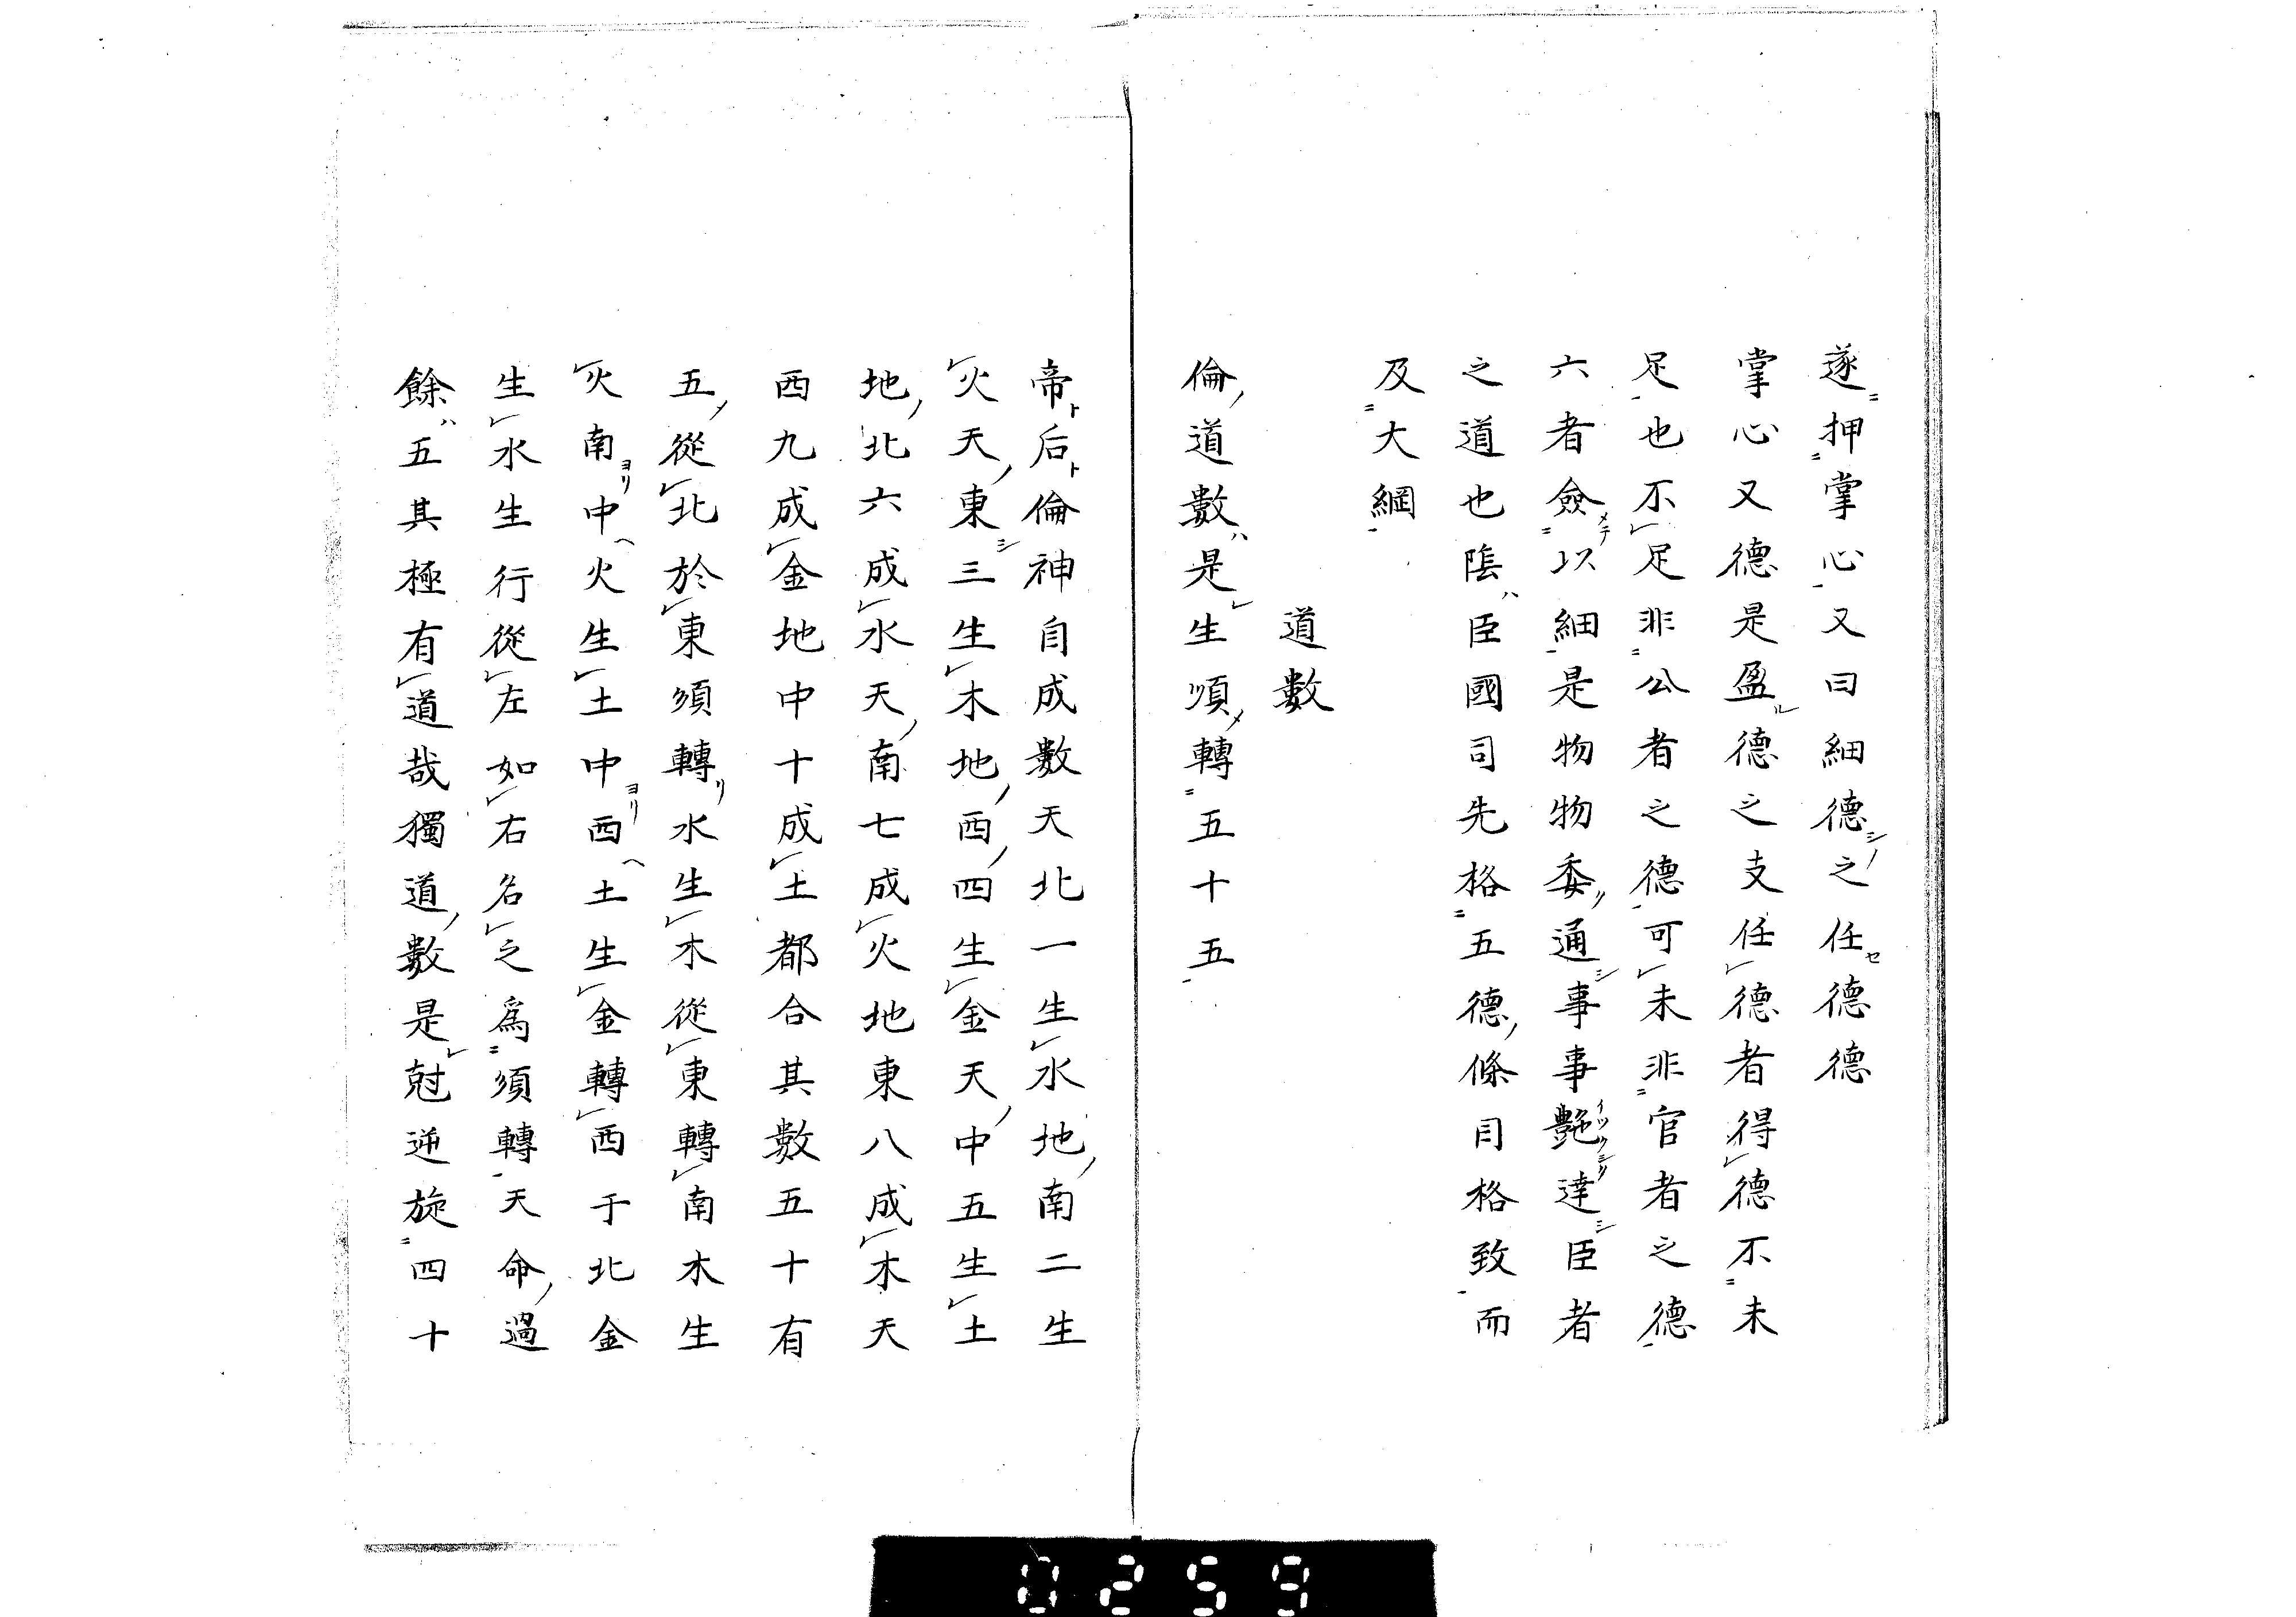 遂押掌心又曰細德之任德德
掌心又德是盈德之支任德者得德不未
足也不足非公者之德可未非官者之德
六者僉以細是物物委通事事艶達臣者
之道也陰臣國司先格五德條目格致而
及大綱
道數
倫道數是生順轉五十五
帝后倫神自成數天北一生水地南二生
火天東三生木地西四生金天中五生土
地北六成水天南七成火地東八成木天
西九成金地中十成土都合其數五十有
五從北於東須轉水生木從東轉南木生
火南ヨリ中ヘ火生土中ヨリ西ヘ土生金轉西于北金
生水生行從左如右名之爲須轉天命過
餘ハ五其極有道哉獨道數是尅逆旋四十
0259